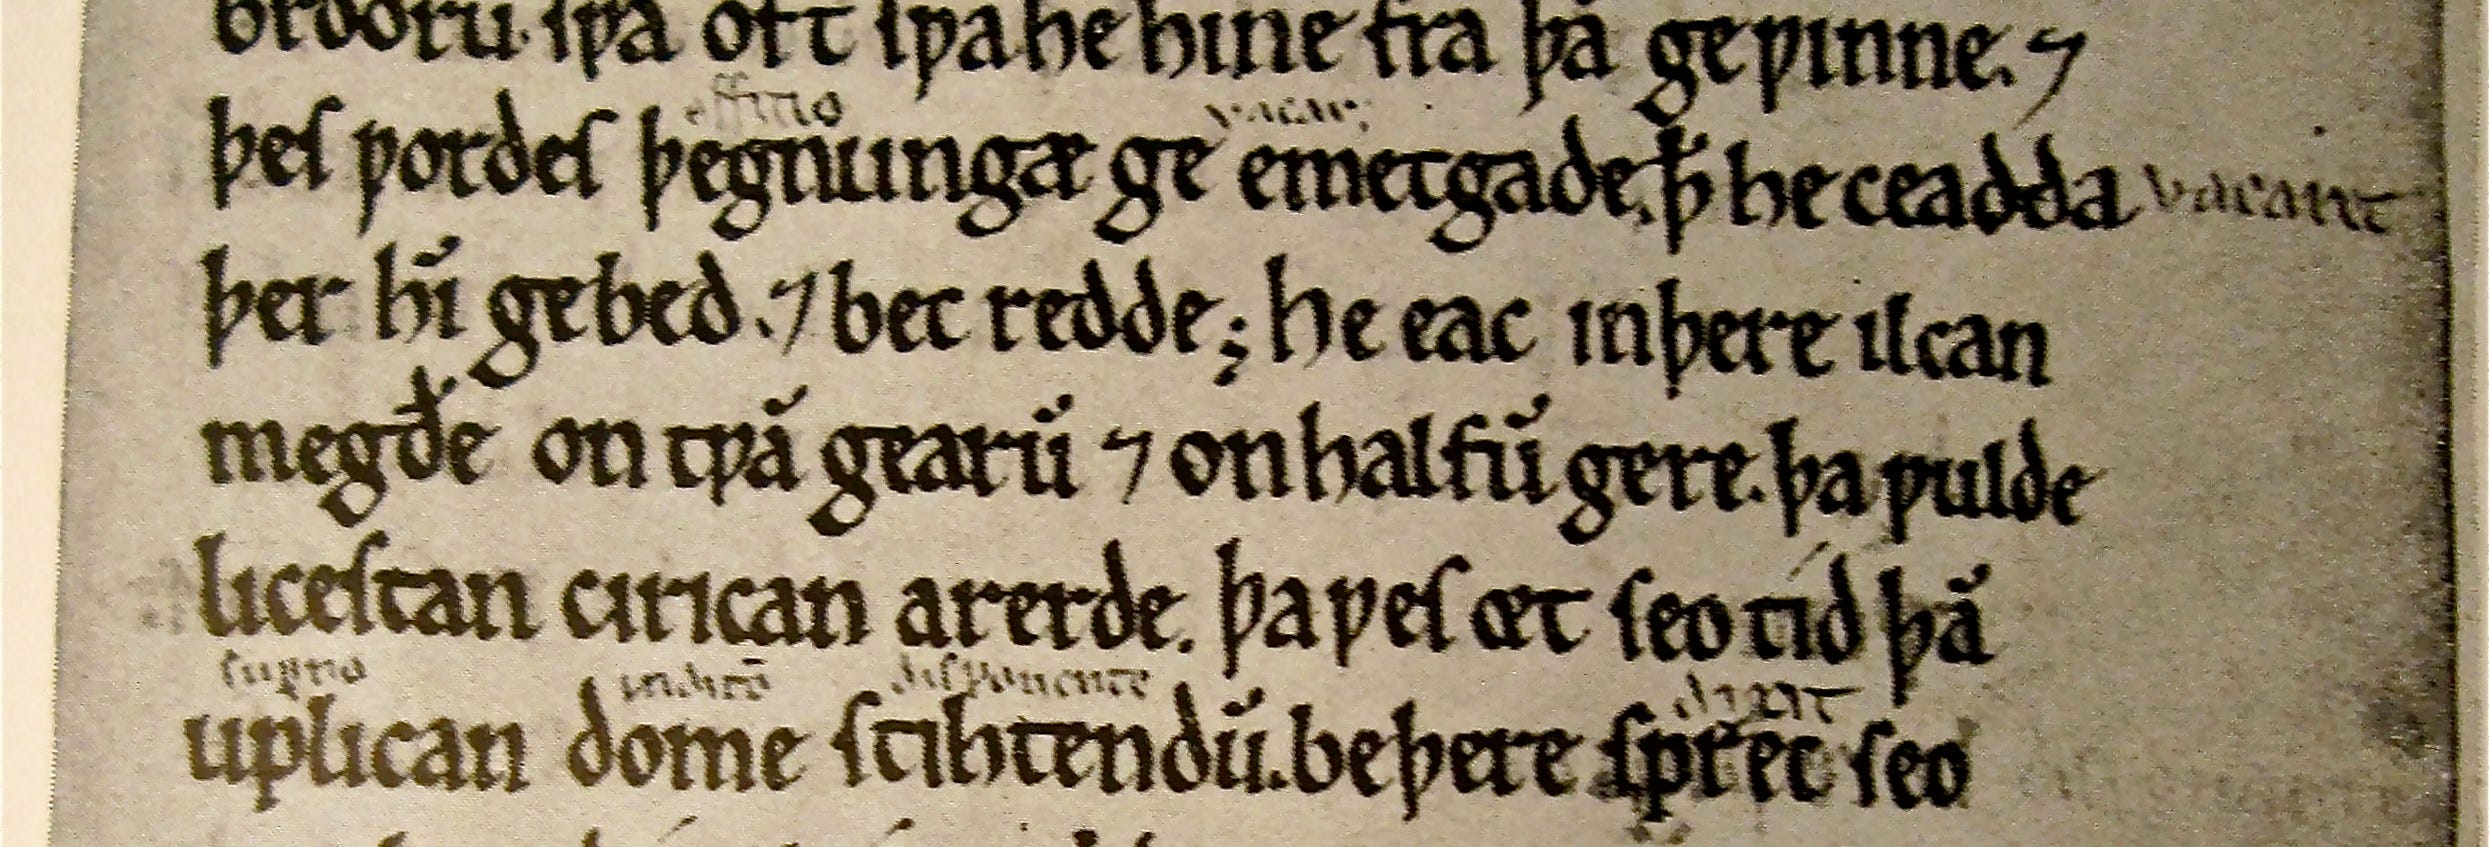 broðrū. ſƿa oft ſƿa he hine fra þā geƿinne. ⁊
effitio vacar;
þeſ ƿordeſ þegnungæ ge emetgade. ꝥ he ceadda vacant
þer hī gebed. ⁊ bec redde; he eac inþere ilcan
megðe on tƿā gearū ⁊ on halfū gere. þa ƿulde
liceſtan cirican arerde. þa ƿeſ æt ſeo tid þā
indicō diſponente
uplican dome ſtihtendū. be þere ſprec ſeo